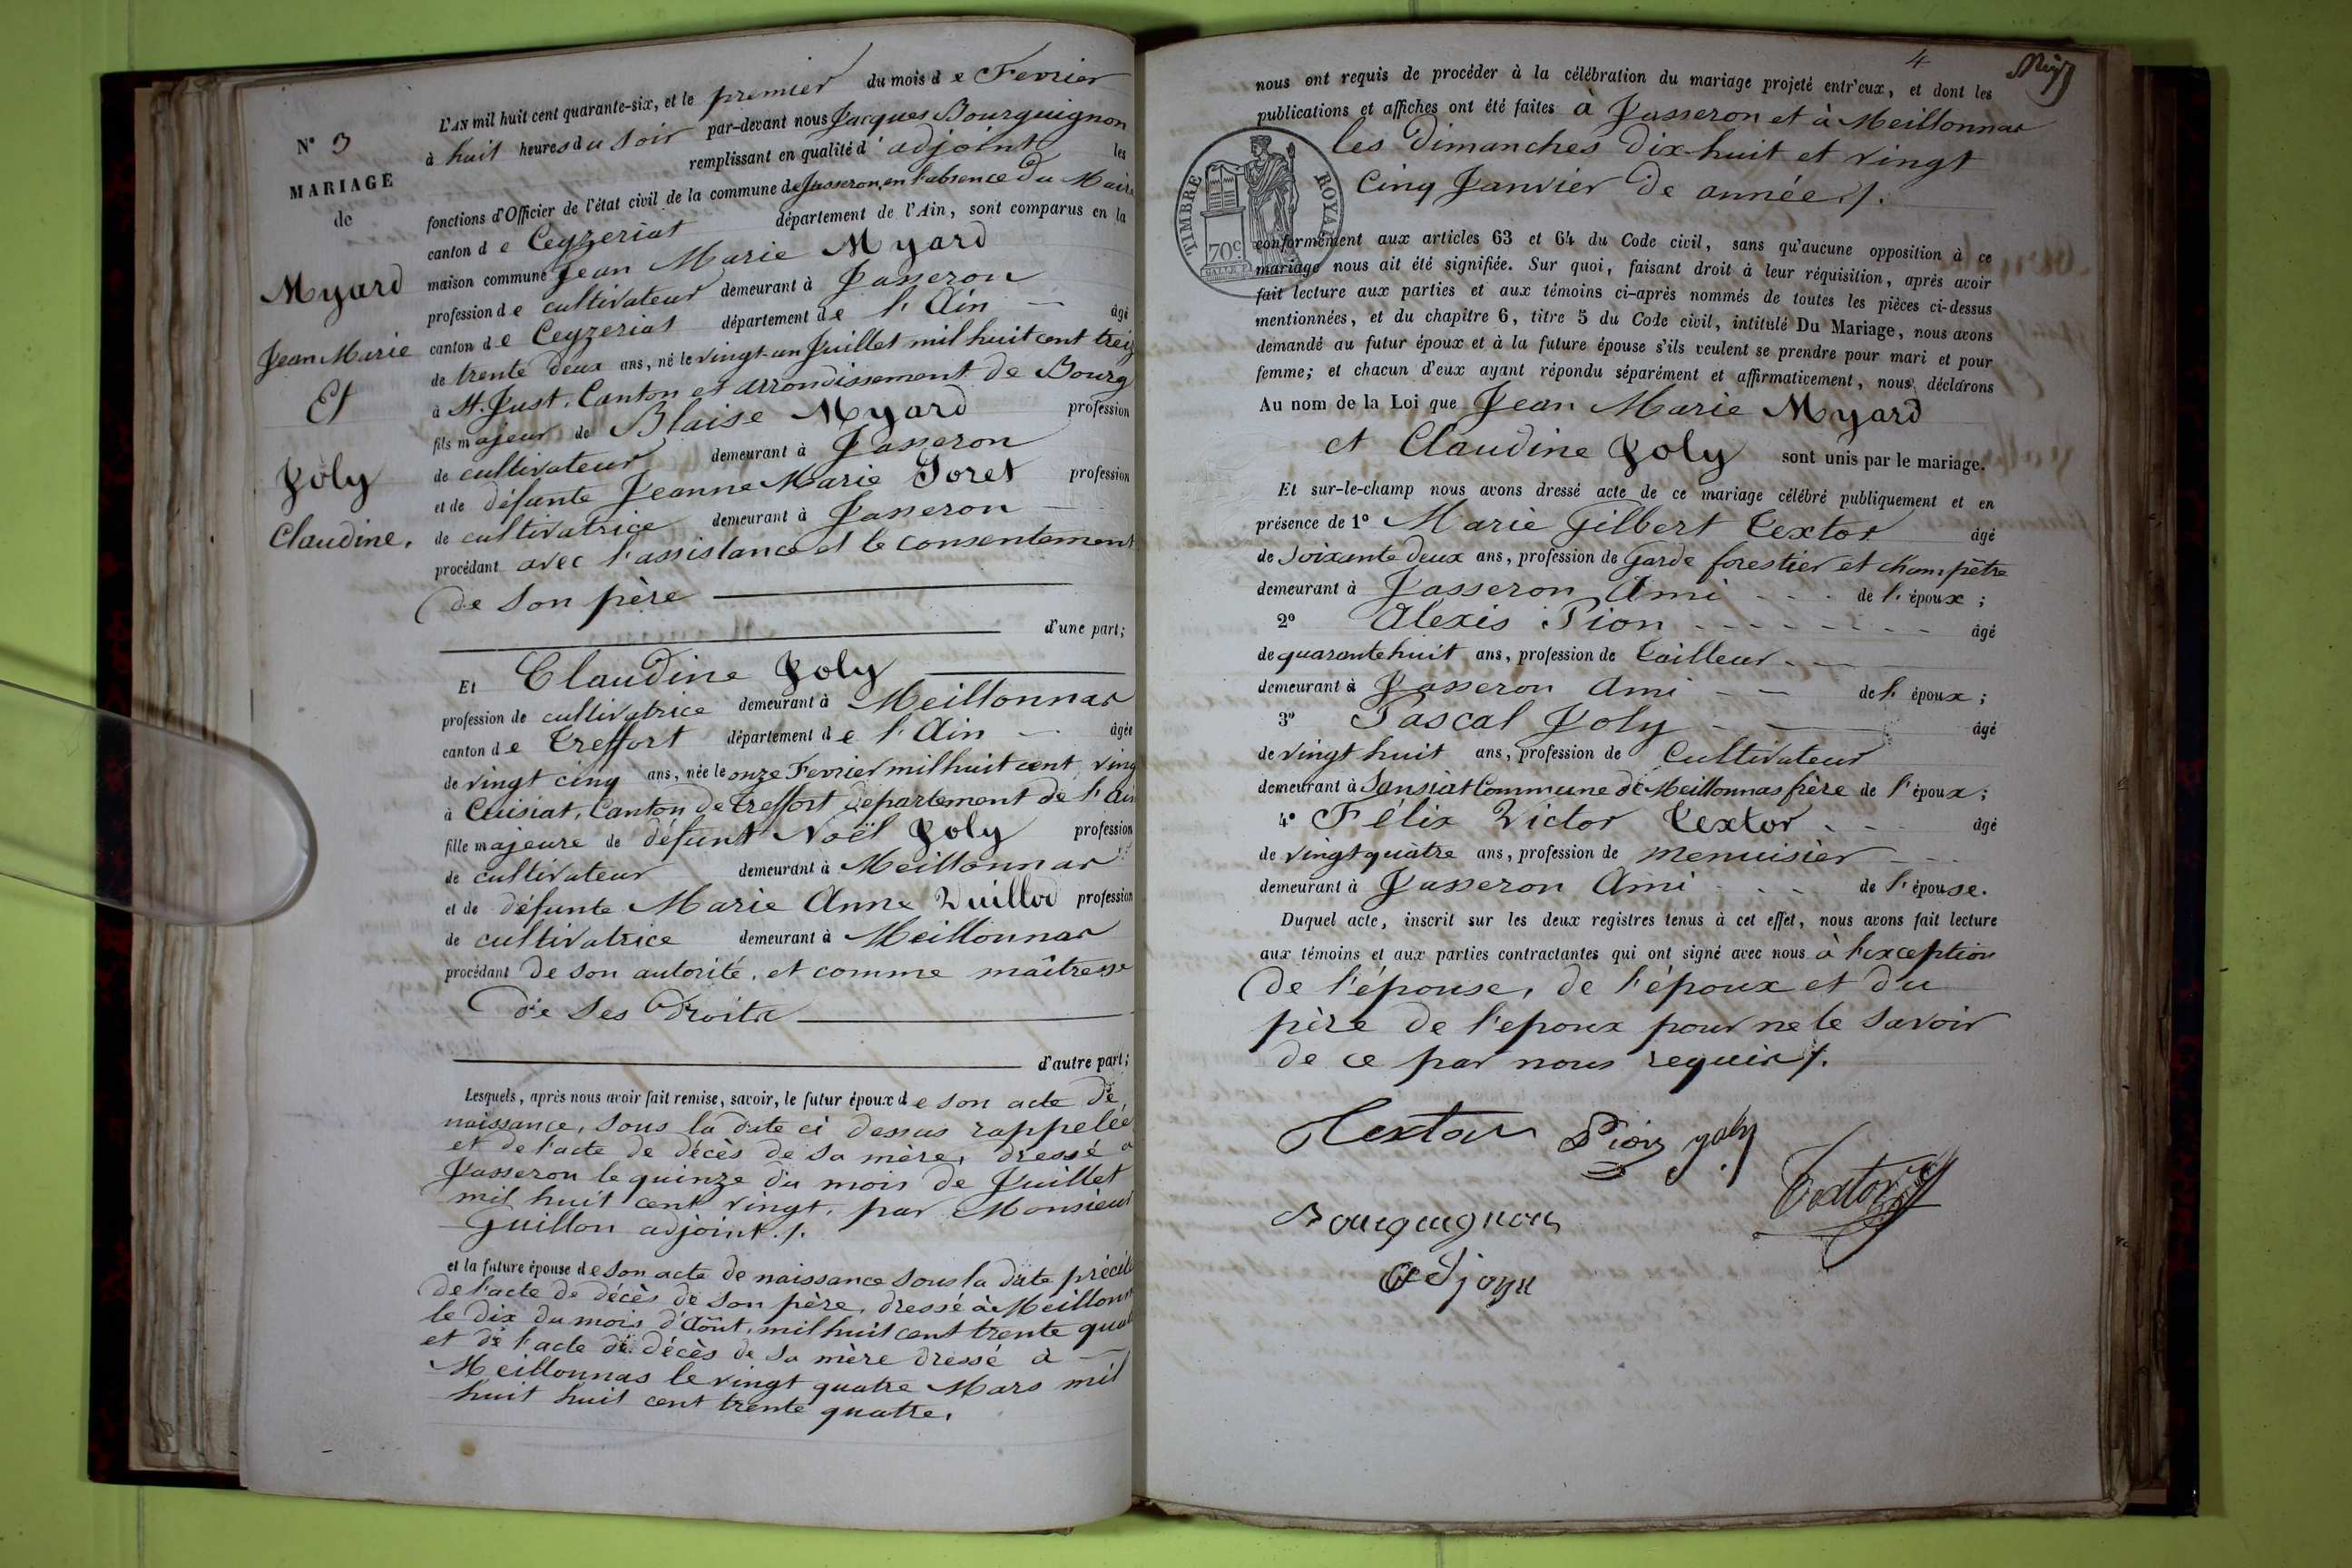 N° 3
MARIAGE
de
Myard
Jean Marie
Et
Joly
Claudine.
L'AN mil huit cent quarante-six, et le premier du mois de Fevrier
à huit heures du soir par-devant nous Jacques Bourguignon
remplissant en qualité d'adjoint les
fonctions d'Officier de l'état civil de la commune de Jasseron, en l'absence du Maire
canton de Ceyzeriat département de l'Ain, sont comparus en la
maison commune Jean Marie Myard
profession de cultivateur demeurant à Jasseron
canton de Ceyzeriat département de l'Ain âgé
de trente deux ans, né le vingt-un Juillet mil huit cent treiz
à St. Just, Canton et arrondissement de Bourg
fils majeur de Blaise Myard profession
de cultivateur demeurant à Jasseron
et de défunte Jeanne Marie Poret profession
de cultivatrice demeurant à Jasseron
procédant avec l'assistance et le consentement
de son père
d'une part;
Et Claudine Joly
profession de cultivatrice demeurant à Meillonnas
canton de Treffort département de l'Ain âgée
de vingt cinq ans, née le onze Fevrier mil huit cent vingt
à Cuisiat, Canton de Treffort département de l'Ain
fille majeure de défunt Noël Joly profession
de cultivateur demeurant à Meillonnas
et de défunte Marie Anne Vuillod profession
de cultivatrice demeurant à Meillonnas
procédant de son autorité, et comme maîtresse
de ses droits
d'autre part;
Lesquels, après nous avoir fait remise, savoir, le futur époux de son acte de
naissance, sous la date ci dessus rappelée
et de l'acte de décès de sa mère, dressé à
Jasseron le quinze du mois de Juillet
mil huit cent vingt, par Monsieur
Guillon adjoint./.
et la future épouse de son acte de naissance sous la date précité
de l'acte de décès de son père, dressé à Meillonn
le dix du mois d'Août, mil huit cent trente quat
et de l'acte de décès de sa mère dressé à
Meillonnas le vingt quatre Mars mil
huit huit cent trente quatre.
4
nous ont requis de procéder à la célébration du mariage projeté entr'eux, et dont les
publications et affiches ont été faites à Jasseron et à Meillonnas
les Dimanches Dix-huit et vingt
Cinq Janvier de année./.
TIMBRE ROYAL
70 c
conformément aux articles 63 et 64 du Code civil, sans qu'aucune opposition à ce
mariage nous ait été signifiée. Sur quoi, faisant droit à leur réquisition, après avoir
fait lecture aux parties et aux témoins ci-après nommés de toutes les pièces ci-dessus
mentionnées, et du chapitre 6, titre 5 du Code civil, intitulé Du Mariage, nous avons
demandé au futur époux et à la future épouse s'ils veulent se prendre pour mari et pour
femme; et chacun d'eux ayant répondu séparément et affirmativement, nous déclarons
Au nom de la Loi que Jean Marie Myard
et Claudine Joly sont unis par le mariage.
Et sur-le-champ nous avons dressé acte de ce mariage célébré publiquement et en
présence de 1° Marie Gilbert Textor âgé
de Soixante deux ans, profession de Garde forestier et champêtre
demeurant à Jasseron Ami de l'époux;
2° Alexis Pion âgé
de quarante huit ans, profession de Tailleur
demeurant à Jasseron Ami de l'époux;
3° Pascal Joly âgé
de vingt huit ans, profession de Cultivateur
demeurant à Sansiat Commune de Meillonnas frère de l'époux;
4° Félix Victor Textor âgé
de vingt quatre ans, profession de menuisier
demeurant à Jasseron Ami de l'épouse.
Duquel acte, inscrit sur les deux registres tenus à cet effet, nous avons fait lecture
aux témoins et aux parties contractantes qui ont signé avec nous à l'exception
de l'épouse, de l'époux et du
père de l'epoux pour ne le savoir
de ce par nous requis/.
Textor Pion joly
Textor
Bourguignon
Adjoint